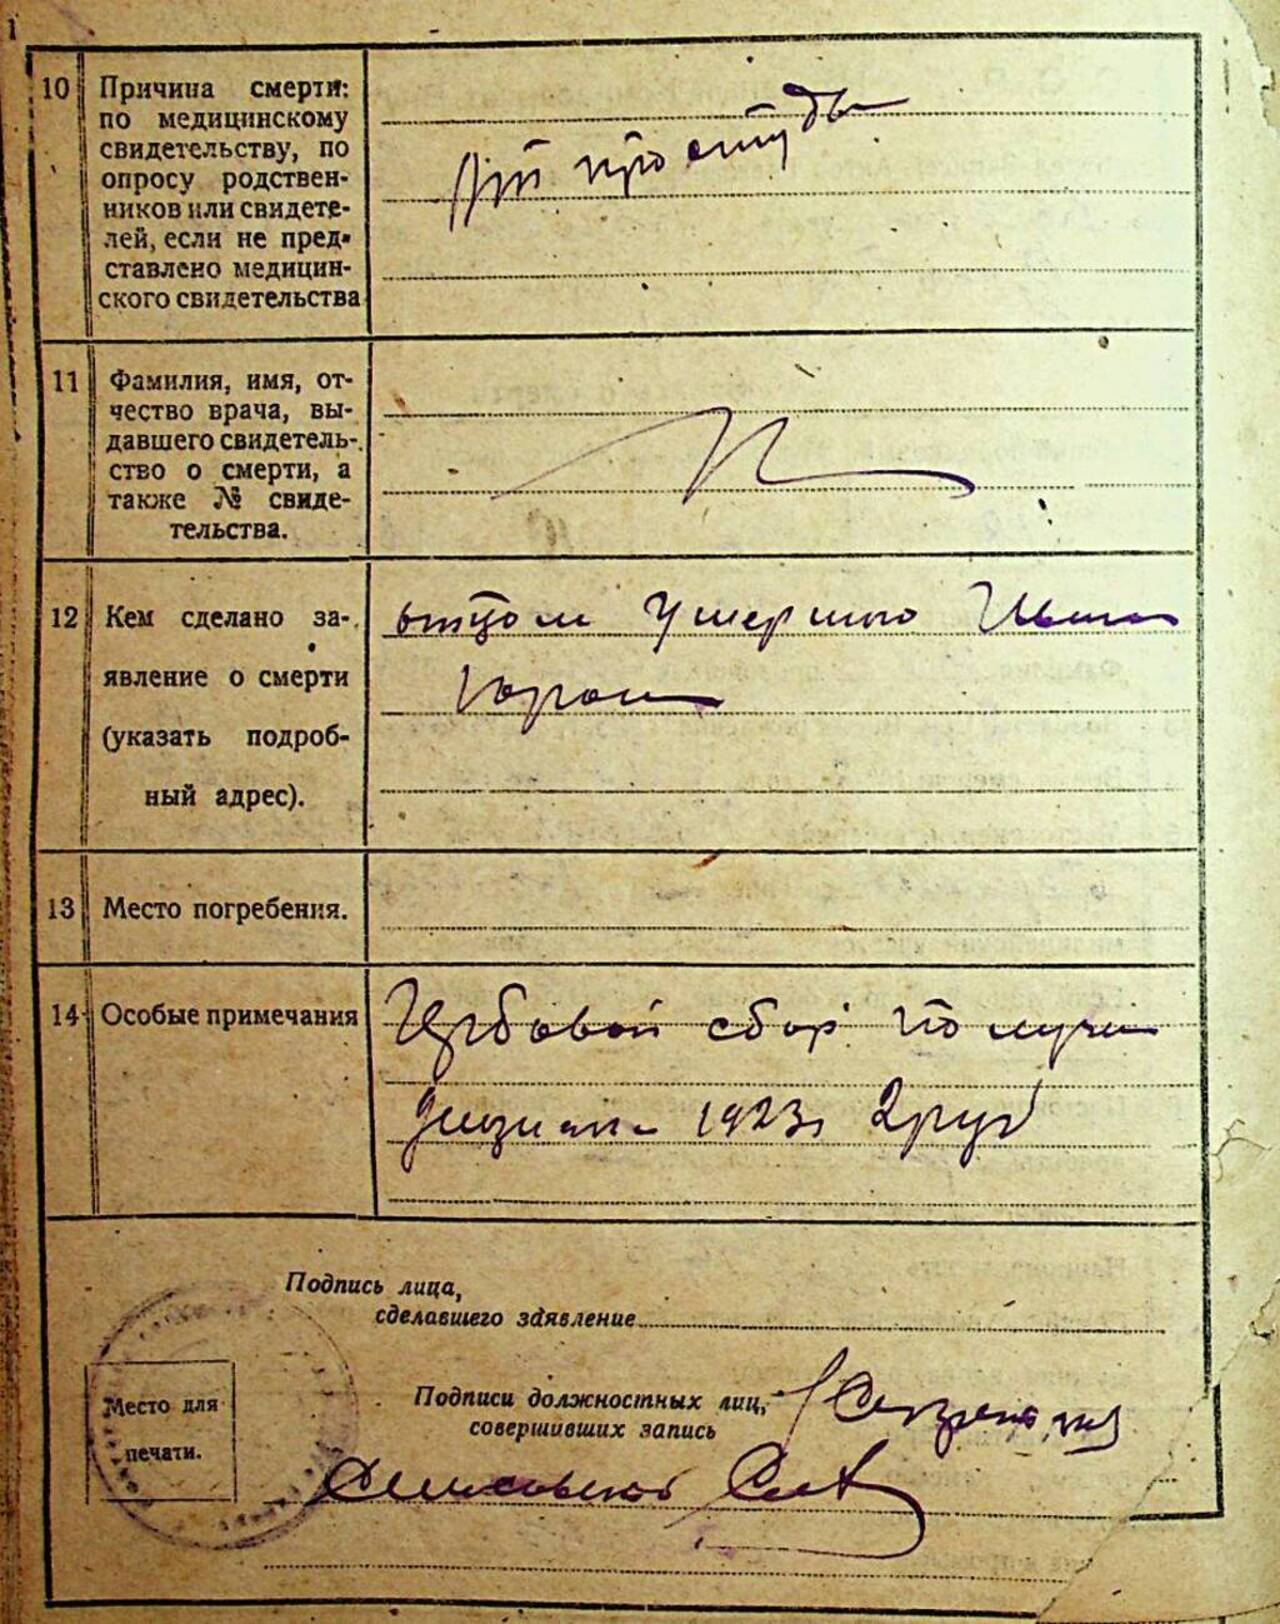 10 Причина смерти:
по медицинскому
свидетельству, по
опросу родствен-
ников или свидете-
лей, если не пред-
ставлено медицин-
ского свидетельства
От простуды
11 Фамилия, имя, от-
чество врача, вы-
давшего свидетель-
ство о смерти, а
также № свиде-
тельства.
12 Кем сделано за-
явление о смерти
(указать подроб-
ный адрес).
отцом умершего
13 Место погребения.
14 Особые примечания
Гербовой сбор
1923 2 руб
Подпись лица,
сделавшего заявление
Место для
печати.
Подписи должностных лиц,
совершивших запись